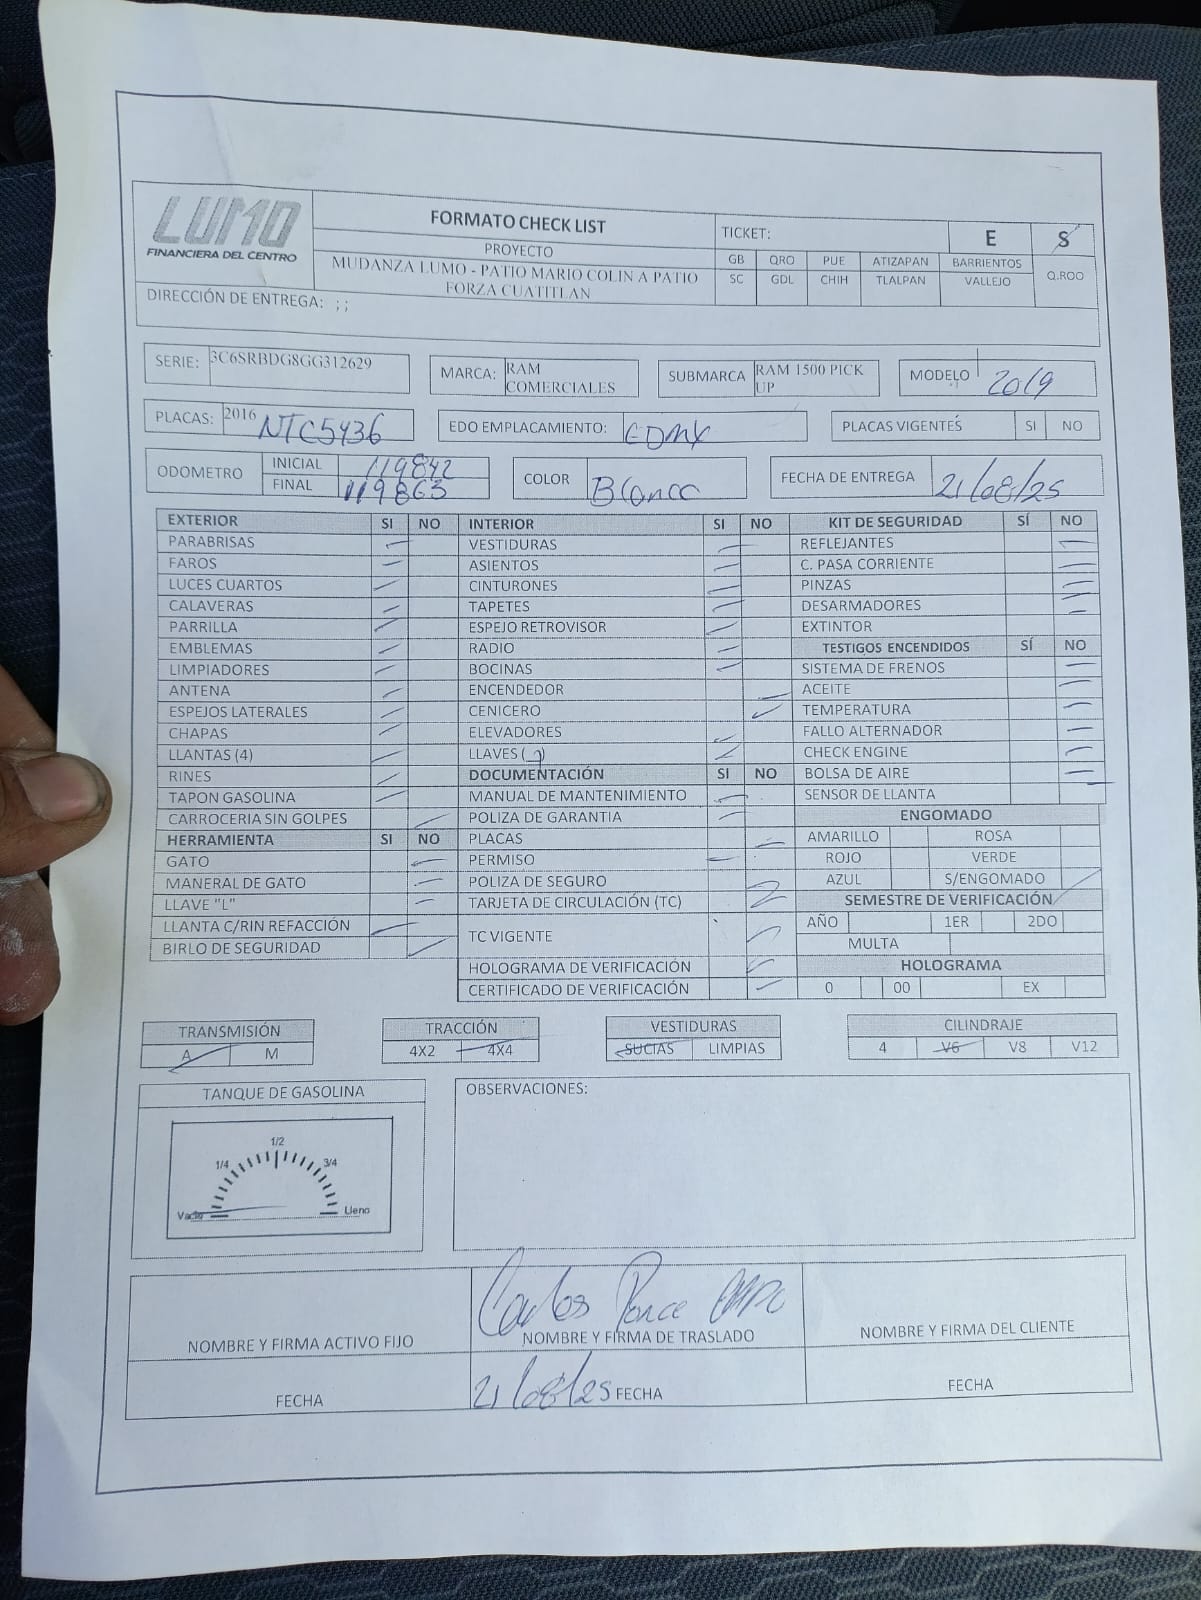 LUMO
FINANCIERA DEL CENTRO
FORMATO CHECK LIST
PROYECTO
MUDANZA LUMO - PATIO MARIO COLIN A PATIO
FORZA CUATITLAN
TICKET: E S
GB QRO PUE ATIZAPAN BARRIENTOS Q.ROO
SC GDL CHIH TLALPAN VALLEJO
DIRECCIÓN DE ENTREGA: ; ;
SERIE: 3C6SRBDG8GG312629
MARCA: RAM
COMERCIALES
SUBMARCA RAM 1500 PICK
UP
MODELO 2019
PLACAS: 2016 NTC5436
EDO EMPLACAMIENTO: CDMX
PLACAS VIGENTES SI NO
ODOMETRO INICIAL 119842
FINAL 119863
COLOR Blanco
FECHA DE ENTREGA 21/08/25
EXTERIOR SI NO
PARABRISAS
FAROS
LUCES CUARTOS
CALAVERAS
PARRILLA
EMBLEMAS
LIMPIADORES
ANTENA
ESPEJOS LATERALES
CHAPAS
LLANTAS (4)
RINES
TAPON GASOLINA
CARROCERIA SIN GOLPES
HERRAMIENTA SI NO
GATO
MANERAL DE GATO
LLAVE "L"
LLANTA C/RIN REFACCIÓN
BIRLO DE SEGURIDAD
INTERIOR SI NO
VESTIDURAS
ASIENTOS
CINTURONES
TAPETES
ESPEJO RETROVISOR
RADIO
BOCINAS
ENCENDEDOR
CENICERO
ELEVADORES
LLAVES ( )
DOCUMENTACIÓN SI NO
MANUAL DE MANTENIMIENTO
POLIZA DE GARANTIA
PLACAS
PERMISO
POLIZA DE SEGURO
TARJETA DE CIRCULACIÓN (TC)
TC VIGENTE
HOLOGRAMA DE VERIFICACIÓN
CERTIFICADO DE VERIFICACIÓN
KIT DE SEGURIDAD SÍ NO
REFLEJANTES
C. PASA CORRIENTE
PINZAS
DESARMADORES
EXTINTOR
TESTIGOS ENCENDIDOS SÍ NO
SISTEMA DE FRENOS
ACEITE
TEMPERATURA
FALLO ALTERNADOR
CHECK ENGINE
BOLSA DE AIRE
SENSOR DE LLANTA
ENGOMADO
AMARILLO ROSA
ROJO VERDE
AZUL S/ENGOMADO
SEMESTRE DE VERIFICACIÓN
AÑO 1ER 2DO
MULTA
HOLOGRAMA
0 00 EX
TRANSMISIÓN
A M
TRACCIÓN
4X2 4X4
VESTIDURAS
SUCIAS LIMPIAS
CILINDRAJE
4 V6 V8 V12
TANQUE DE GASOLINA
1/2
1/4 3/4
Vacio Lleno
OBSERVACIONES:
Carlos Ponce
NOMBRE Y FIRMA ACTIVO FIJO
NOMBRE Y FIRMA DE TRASLADO
NOMBRE Y FIRMA DEL CLIENTE
FECHA
21/08/25 FECHA
FECHA